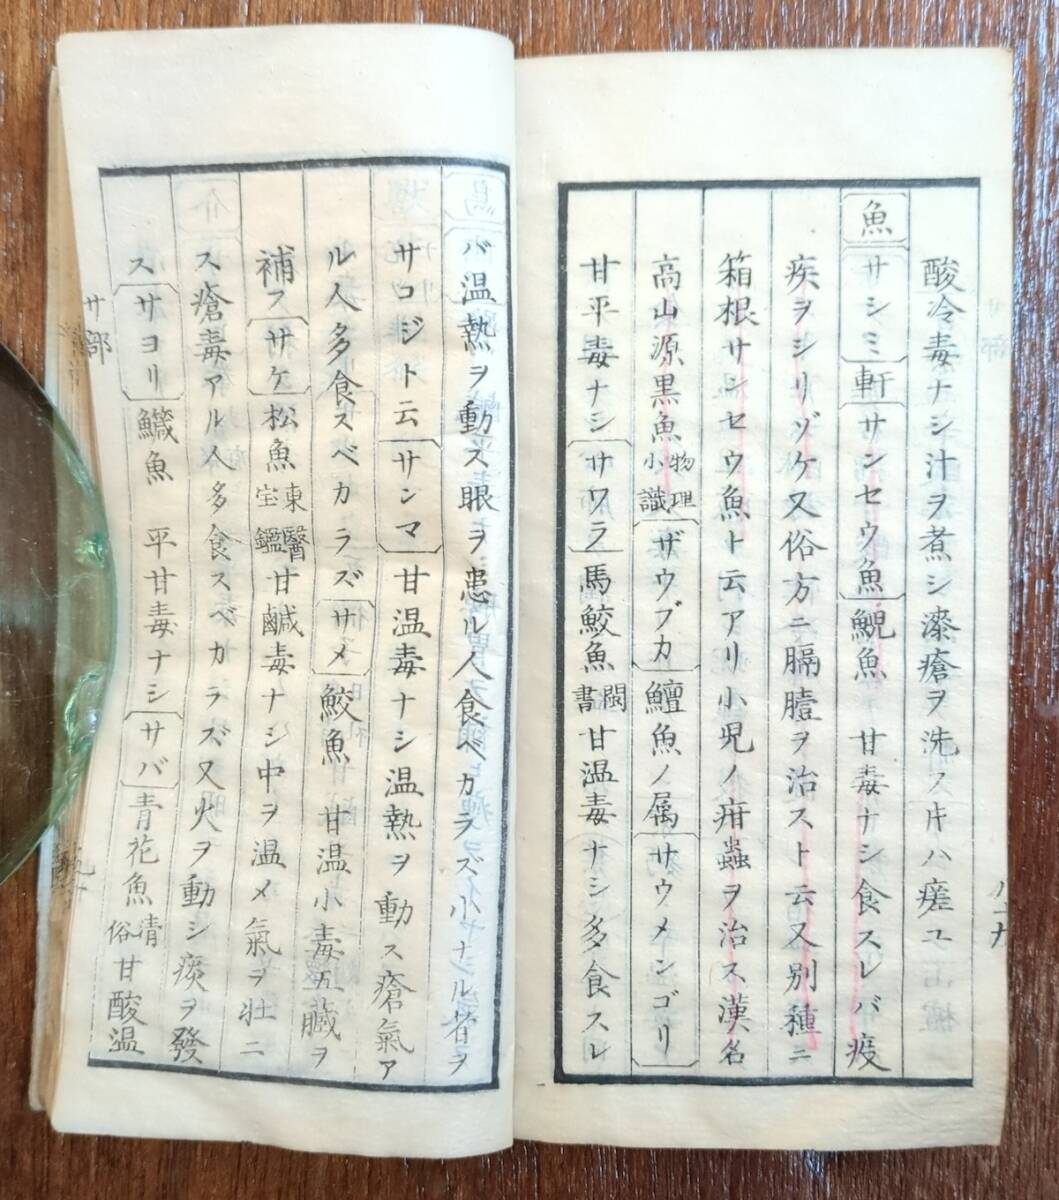 酸冷毒ナシ汁ヲ煮シ漆瘡ヲ洗スㇳキハ瘥ユ
魚 サシミ 軒 サンセウ魚 鯢魚 甘毒ナシ食スレバ疫
疾ヲシリゾケ又俗方ニ膈噎ヲ治スト云又別種ニ
箱根サンセウ魚ト云アリ小児ノ疳蟲ヲ治ス漢名
高山源黒魚 物理小識 ザウブカ 鱣魚ノ属 サウメンゴリ
甘平毒ナシ サワラ 馬鮫魚 閩書 甘温毒ナシ多食スレ
バ温熱ヲ動ス眼ヲ患ル人食ベカラズ小ナル者ヲ
サコジト云 サンマ 甘温毒ナシ温熱ヲ動ス瘡氣ア
ル人多食スベカラズ サメ 鮫魚 甘温小毒五臓ヲ
補ス サケ 松魚 東醫宝鑑 甘鹹毒ナシ中ヲ温メ氣ヲ壮ニ
ス瘡毒アル人多食スベカラズ又火ヲ動シ痰ヲ發
ス サヨリ 鱵魚 平甘毒ナシ サバ 青花魚 清俗 甘酸温
サ部